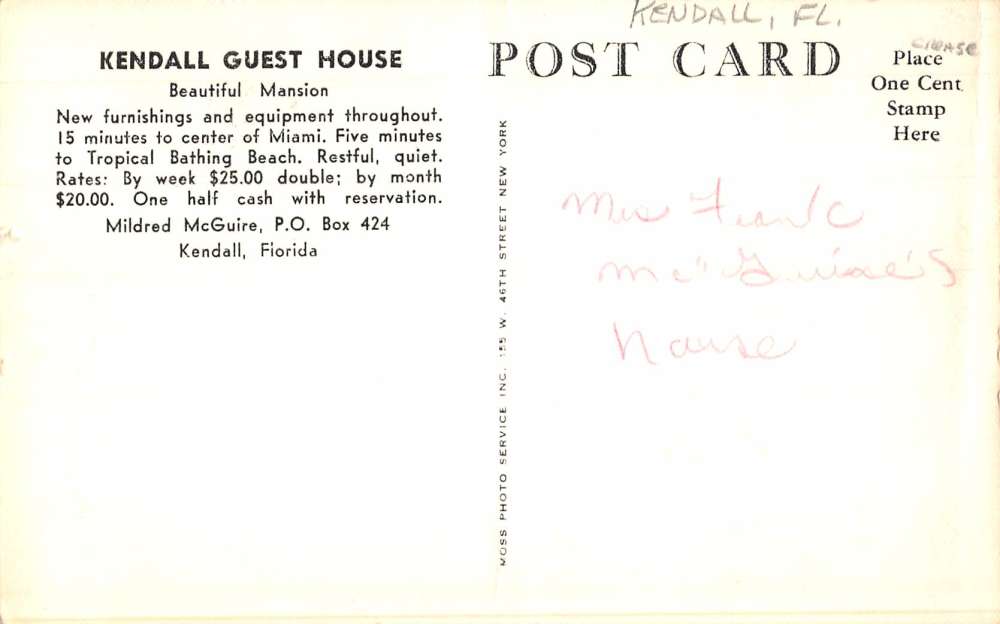 KENDALL, FL.
crease
KENDALL GUEST HOUSE
Beautiful Mansion
New furnishings and equipment throughout.
15 minutes to center of Miami. Five minutes
to Tropical Bathing Beach. Restful, quiet.
Rates: By week $25.00 double; by month
$20.00. One half cash with reservation.
Mildred McGuire, P.O. Box 424
Kendall, Florida
POST CARD
Place
One Cent
Stamp
Here
MOSS PHOTO SERVICE INC. 155 W. 46TH STREET NEW YORK
Mrs Frank
Mc"Guire's
House